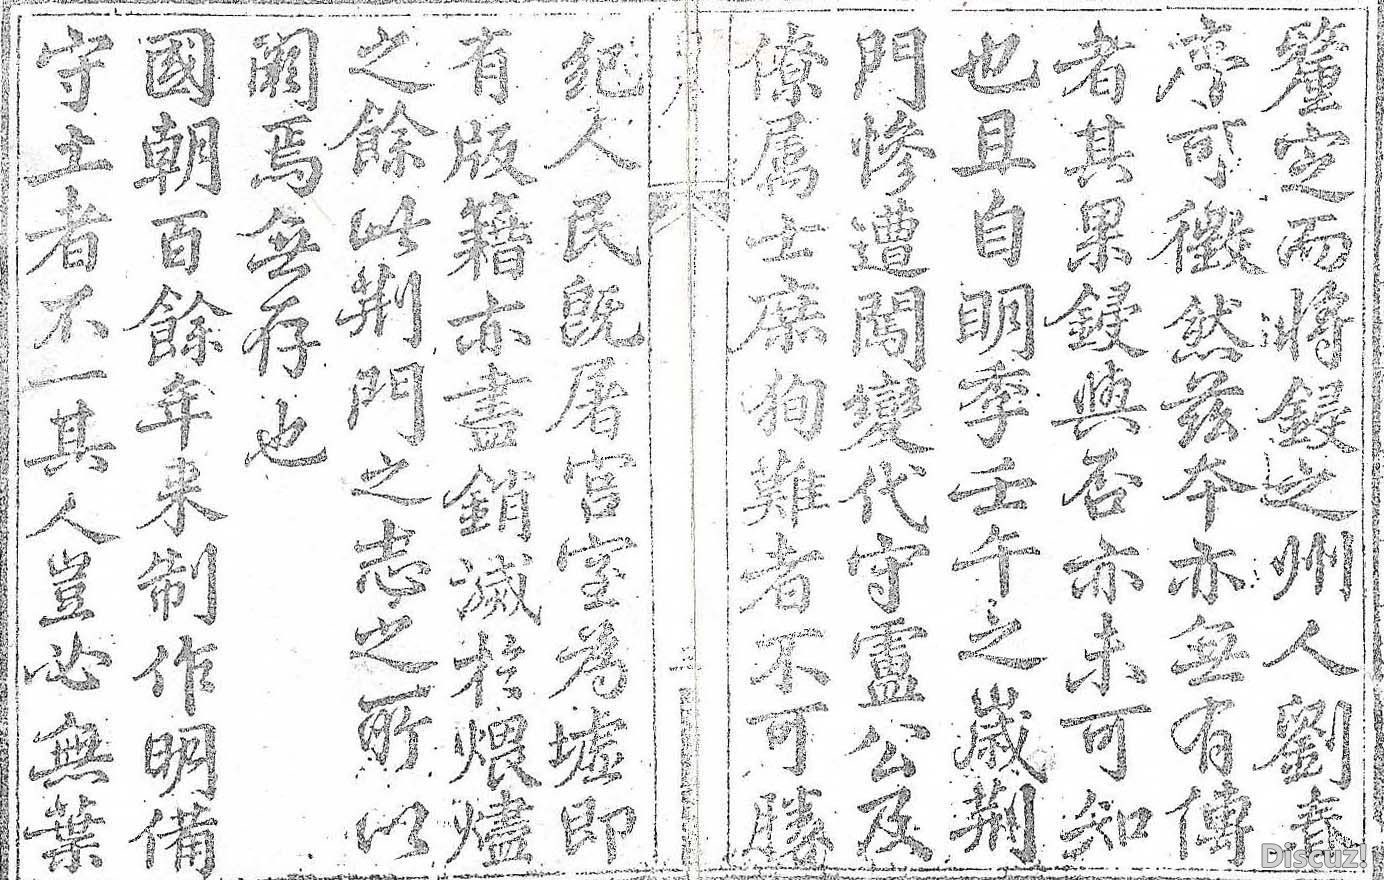 釐定而將鋟之州人劉春
序可徵然茲本亦無有傳
者其果鋟與否亦未可知
也且自明季壬午之歲荆
門慘遭闖變代守盧公及
僚属士庶狥難者不可勝
紀人民旣屠宫室為墟即
有版籍亦盡銷滅於煨燼
之餘此荆門之志之所以
阙焉無存也
國朝百餘年来制作明備
守土者不一其人豈必無葉
Discuz!